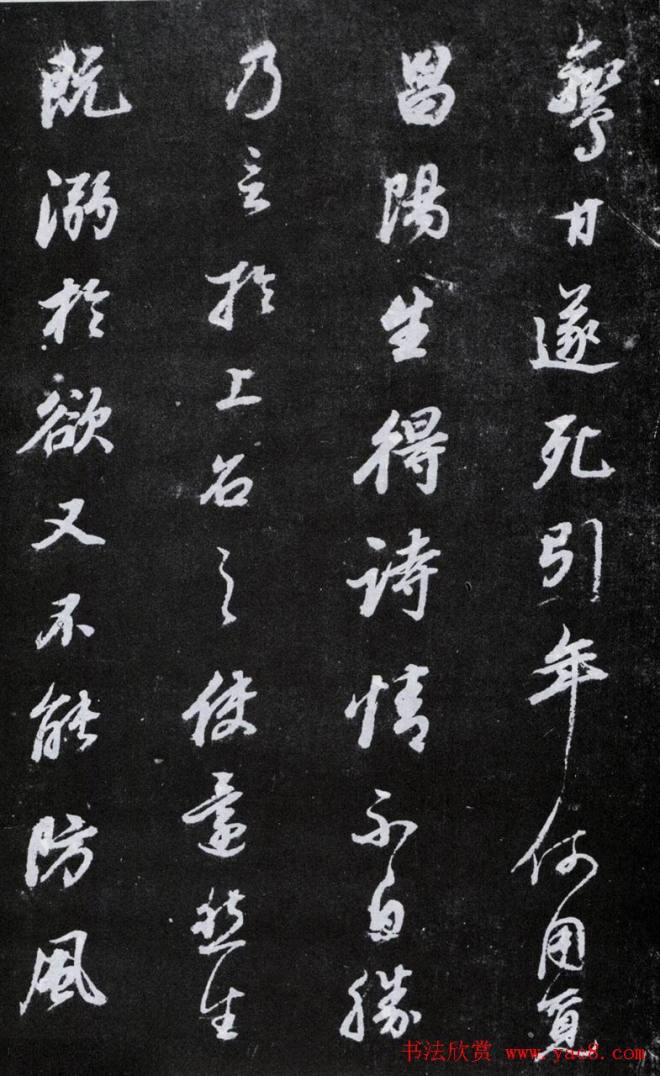 鸞甘遂死引年何用買
昌陽生得詩情不自勝
乃言於上召之使還然生
既溺於欲又不能防風
书法欣赏 www.yac8.com